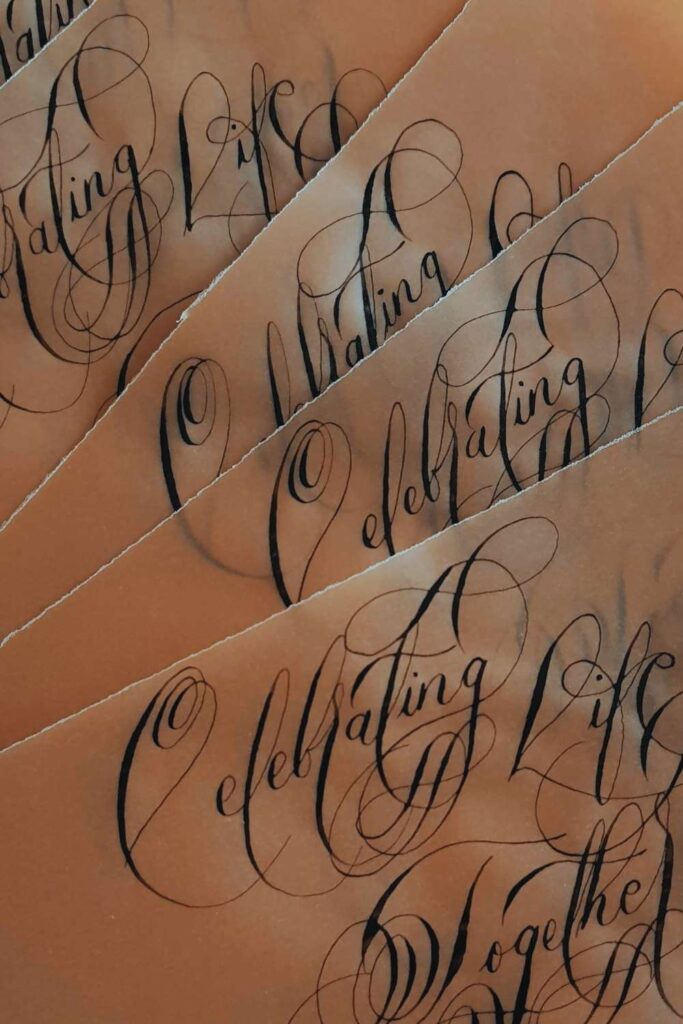 ating
brating Life
Celebrating
Celebrating
Celebrating Life
Together